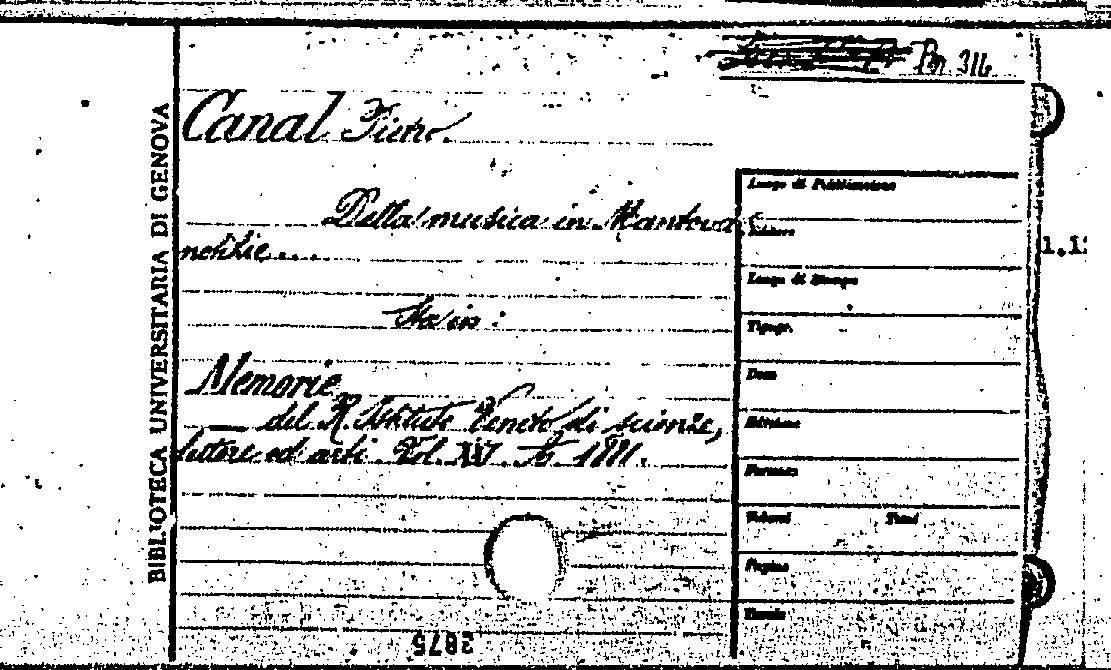 Pm 316
Canal Pietro
Della musica in Mantova
notizie...
Sta in:
Memorie
del R. Istituto Veneto di scienze,
lettere ed arti. Vol. XXI. A. 1881.
BIBLIOTECA UNIVERSITARIA DI GENOVA
Luogo di Pubblicazione
Editore
Luogo di Stampa
Tipogr.
Data
Edizione
Formato
Volumi
Tomi
Pagine
1.1
3875